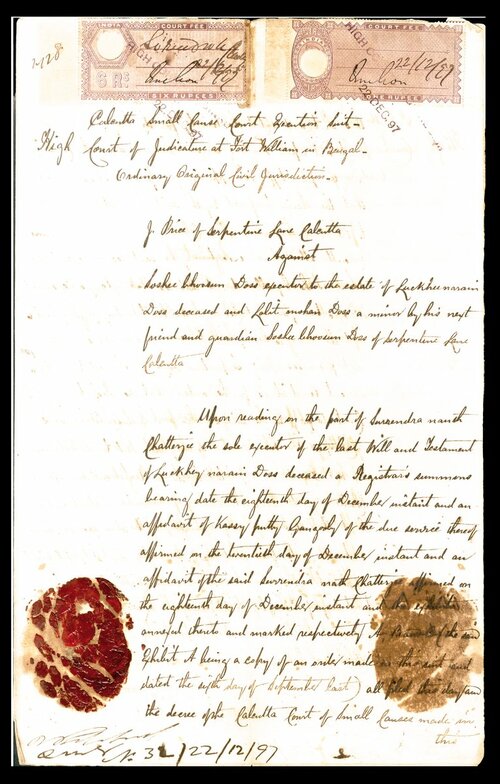 INDIA COURT FEE
2128
6 RS
22/12/97
SIX RUPEES
COURT FEE
HIGH C
22/12/97
22 DEC. 97
RUPEES
Calcutta Small Cause Court Execution Suit.
High Court of Judicature at Fort William in Bengal.
Ordinary Original Civil Jurisdiction.
J. Price of Serpentine Lane Calcutta
Against
Soshee bhoosun Doss executor to the estate of Luckhee narain
Doss deceased and Lolit mohan Doss a minor by his next
friend and guardian Soshee bhoosun Doss of Serpentine Lane
Calcutta
Upon reading on the part of Surrendra nauth
Chatterjee the sole executor of the last Will and Testament
of Luckhey narain Doss deceased a Registrar's summons
bearing date the eighteenth day of December instant and an
affidavit of Kassy putty Gangooly of the due service thereof
affirmed on the twentieth day of December instant and an
affidavit of the said Surrendra nath Chatterjee affirmed on
the eighteenth day of December instant and the exhibits
annexed thereto and marked respectively A B and (the said
Exhibit A being a copy of an order made in this suit and
dated the sixth day of September last) all filed this day and
the decree of the Calcutta Court of Small Causes made in
this
22/12/97